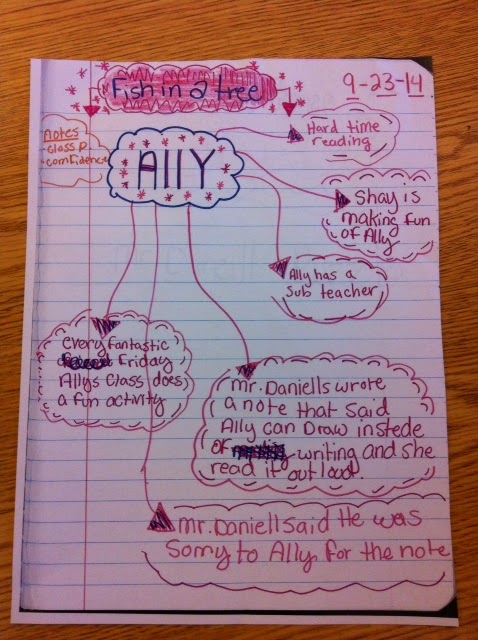 Fish in a tree
9-23-14
Notes
·class p.
·comfidence
Ally
Hard time
reading
Shay is
making fun
of Ally
Ally has a
sub teacher
every fantastic
Friday
Allys class does
a fun activity
mr. Daniells wrote
a note that said
Ally can Draw instede
of writing and she
read it out loud.
mr. Daniell said He was
Sorry to Ally for the note